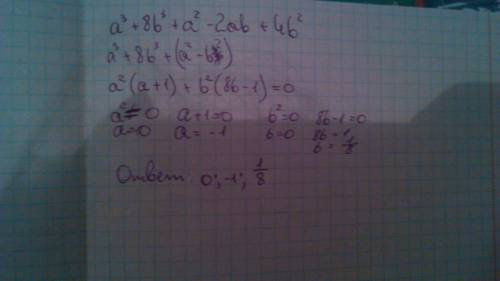 a³ + 8b³ + a² - 2ab + 4b²
a³ + 8b³ + (a² - b²)
a²(a+1) + b²(8b-1) = 0
a² = 0 a+1=0 b²=0 8b-1=0
a=0 a = -1 b=0 8b=1
b = 1/8
Ответ: 0; -1; 1/8